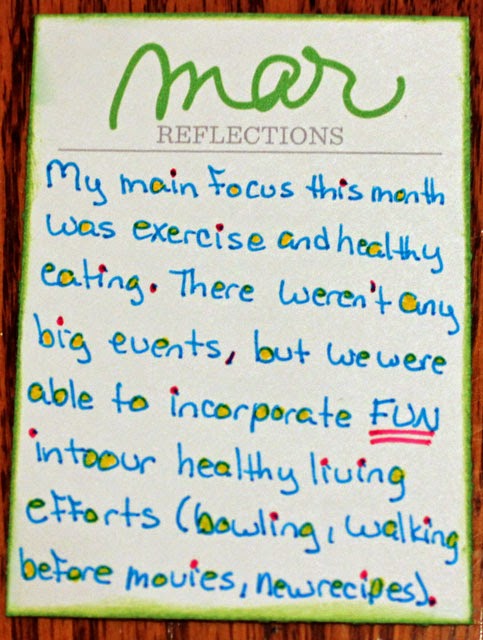 mar
REFLECTIONS
My main focus this month
was exercise and healthy
eating. There weren't any
big events, but we were
able to incorporate FUN
into our healthy living
efforts (bowling, walking
before movies, new recipes).